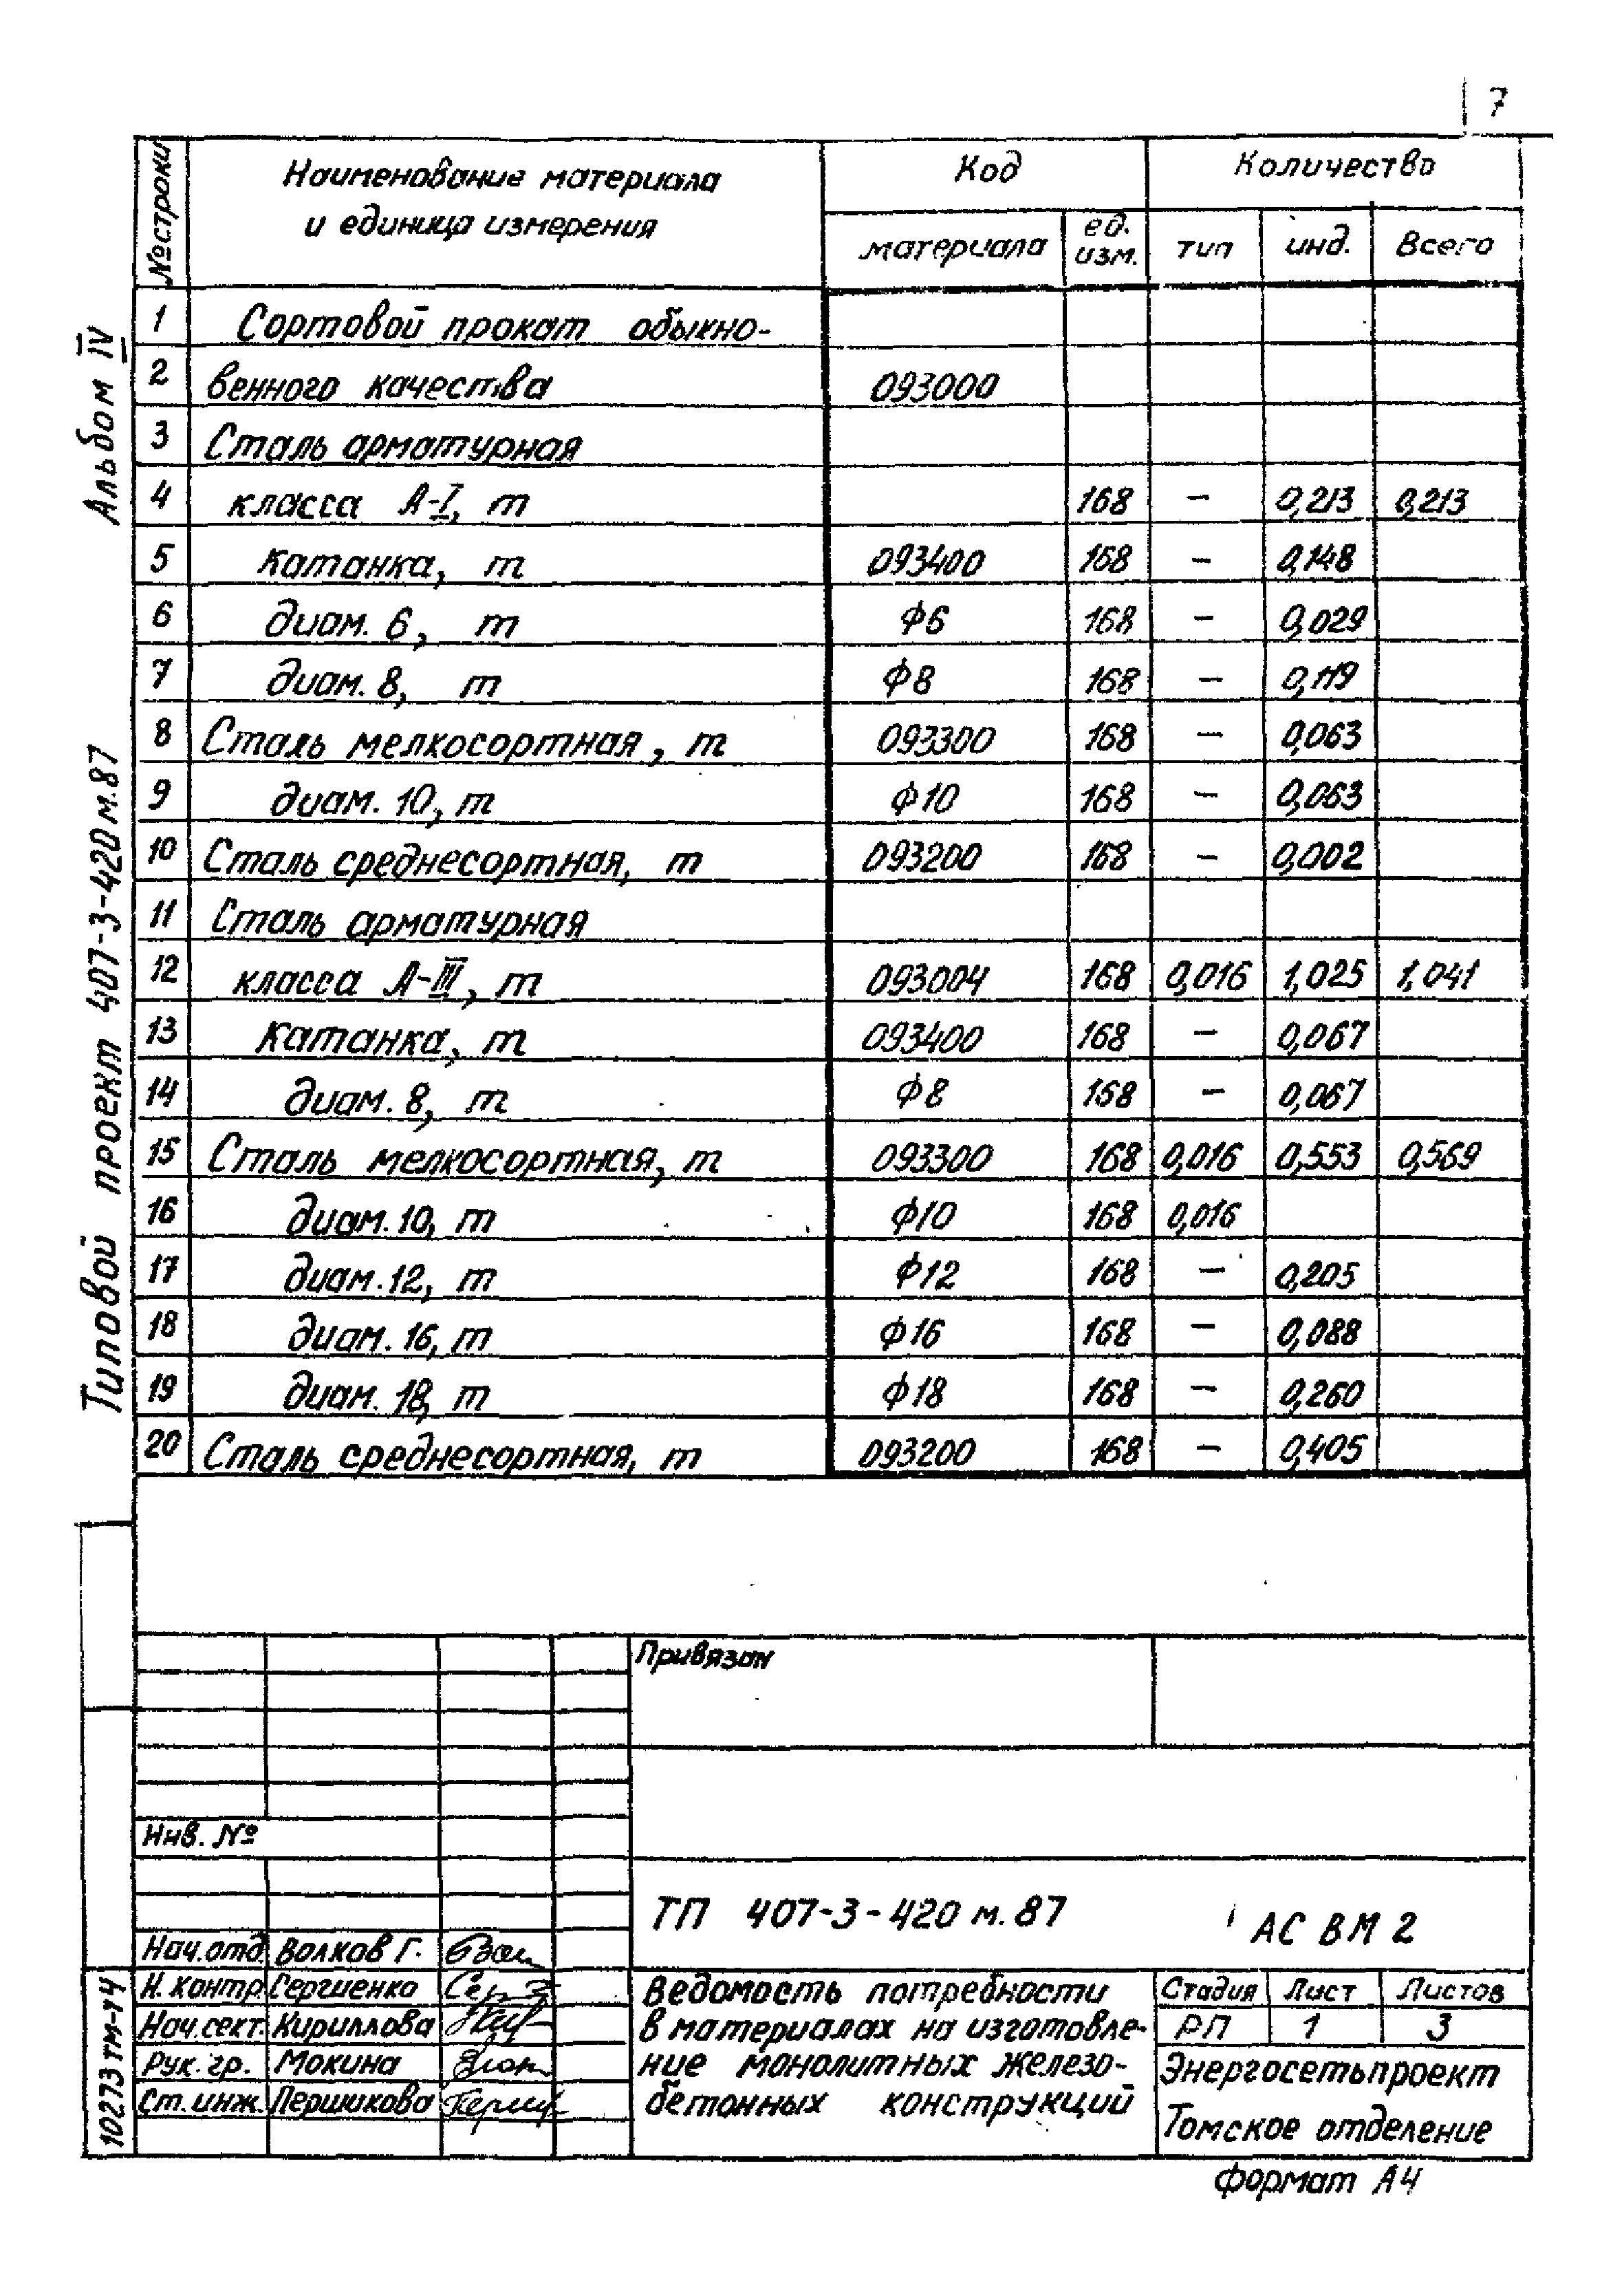 7
№ строки
Наименование материала
и единица измерения
Код
Количество
материала
ед.
изм.
тип
инд.
Всего
1 Сортовой прокат обыкно-
2 венного качества 093000
3 Сталь арматурная
4 класса А-I, т 168 – 0,213 0,213
5 катанка, т 093400 168 – 0,148
6 диам. 6, т ф6 168 – 0,029
7 диам. 8, т ф8 168 – 0,119
8 Сталь мелкосортная, т 093300 168 – 0,063
9 диам. 10, т ф10 168 – 0,063
10 Сталь среднесортная, т 093200 168 – 0,002
11 Сталь арматурная
12 класса А-III, т 093004 168 0,016 1,025 1,041
13 катанка, т 093400 168 – 0,067
14 диам. 8, т ф8 168 – 0,067
15 Сталь мелкосортная, т 093300 168 0,016 0,553 0,569
16 диам. 10, т ф10 168 0,016
17 диам. 12, т ф12 168 – 0,205
18 диам. 16, т ф16 168 – 0,088
19 диам. 18, т ф18 168 – 0,260
20 Сталь среднесортная, т 093200 168 – 0,405
Типовой проект 407-3-420м.87 Альбом IV
Привязан
Инв. №
ТП 407-3-420 м.87 АС ВМ 2
Нач.отд. Волков Г.
Н. контр. Сергиенко
Нач.сект. Кириллова
Рук. гр. Мокина
Ст. инж. Першикова
Ведомость потребности
в материалах на изготовле-
ние монолитных железо-
бетонных конструкций
Стадия Лист Листов
РП 1 3
Энергосетьпроект
Томское отделение
10273тм-т4
формат А4